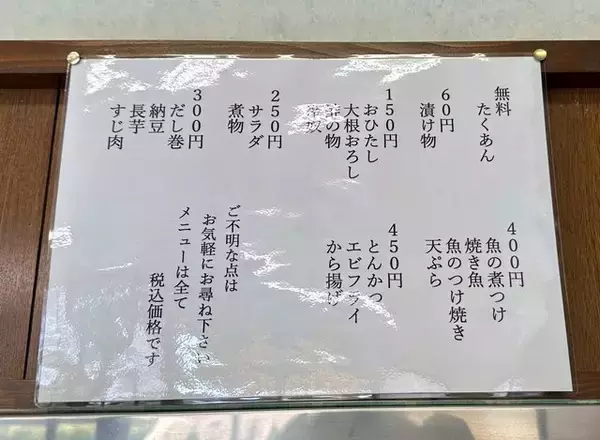 無料
たくあん
60円
漬け物
150円
おひたし
大根おろし
の物
250円
サラダ
煮物
300円
だし巻
納豆
長芋
すじ肉
400円
魚の煮つけ
焼き魚
魚のつけ焼き
天ぷら
450円
とんかつ
エビフライ
から揚げ
ご不明な点は
お気軽にお尋ね下さい
メニューは全て
税込価格です